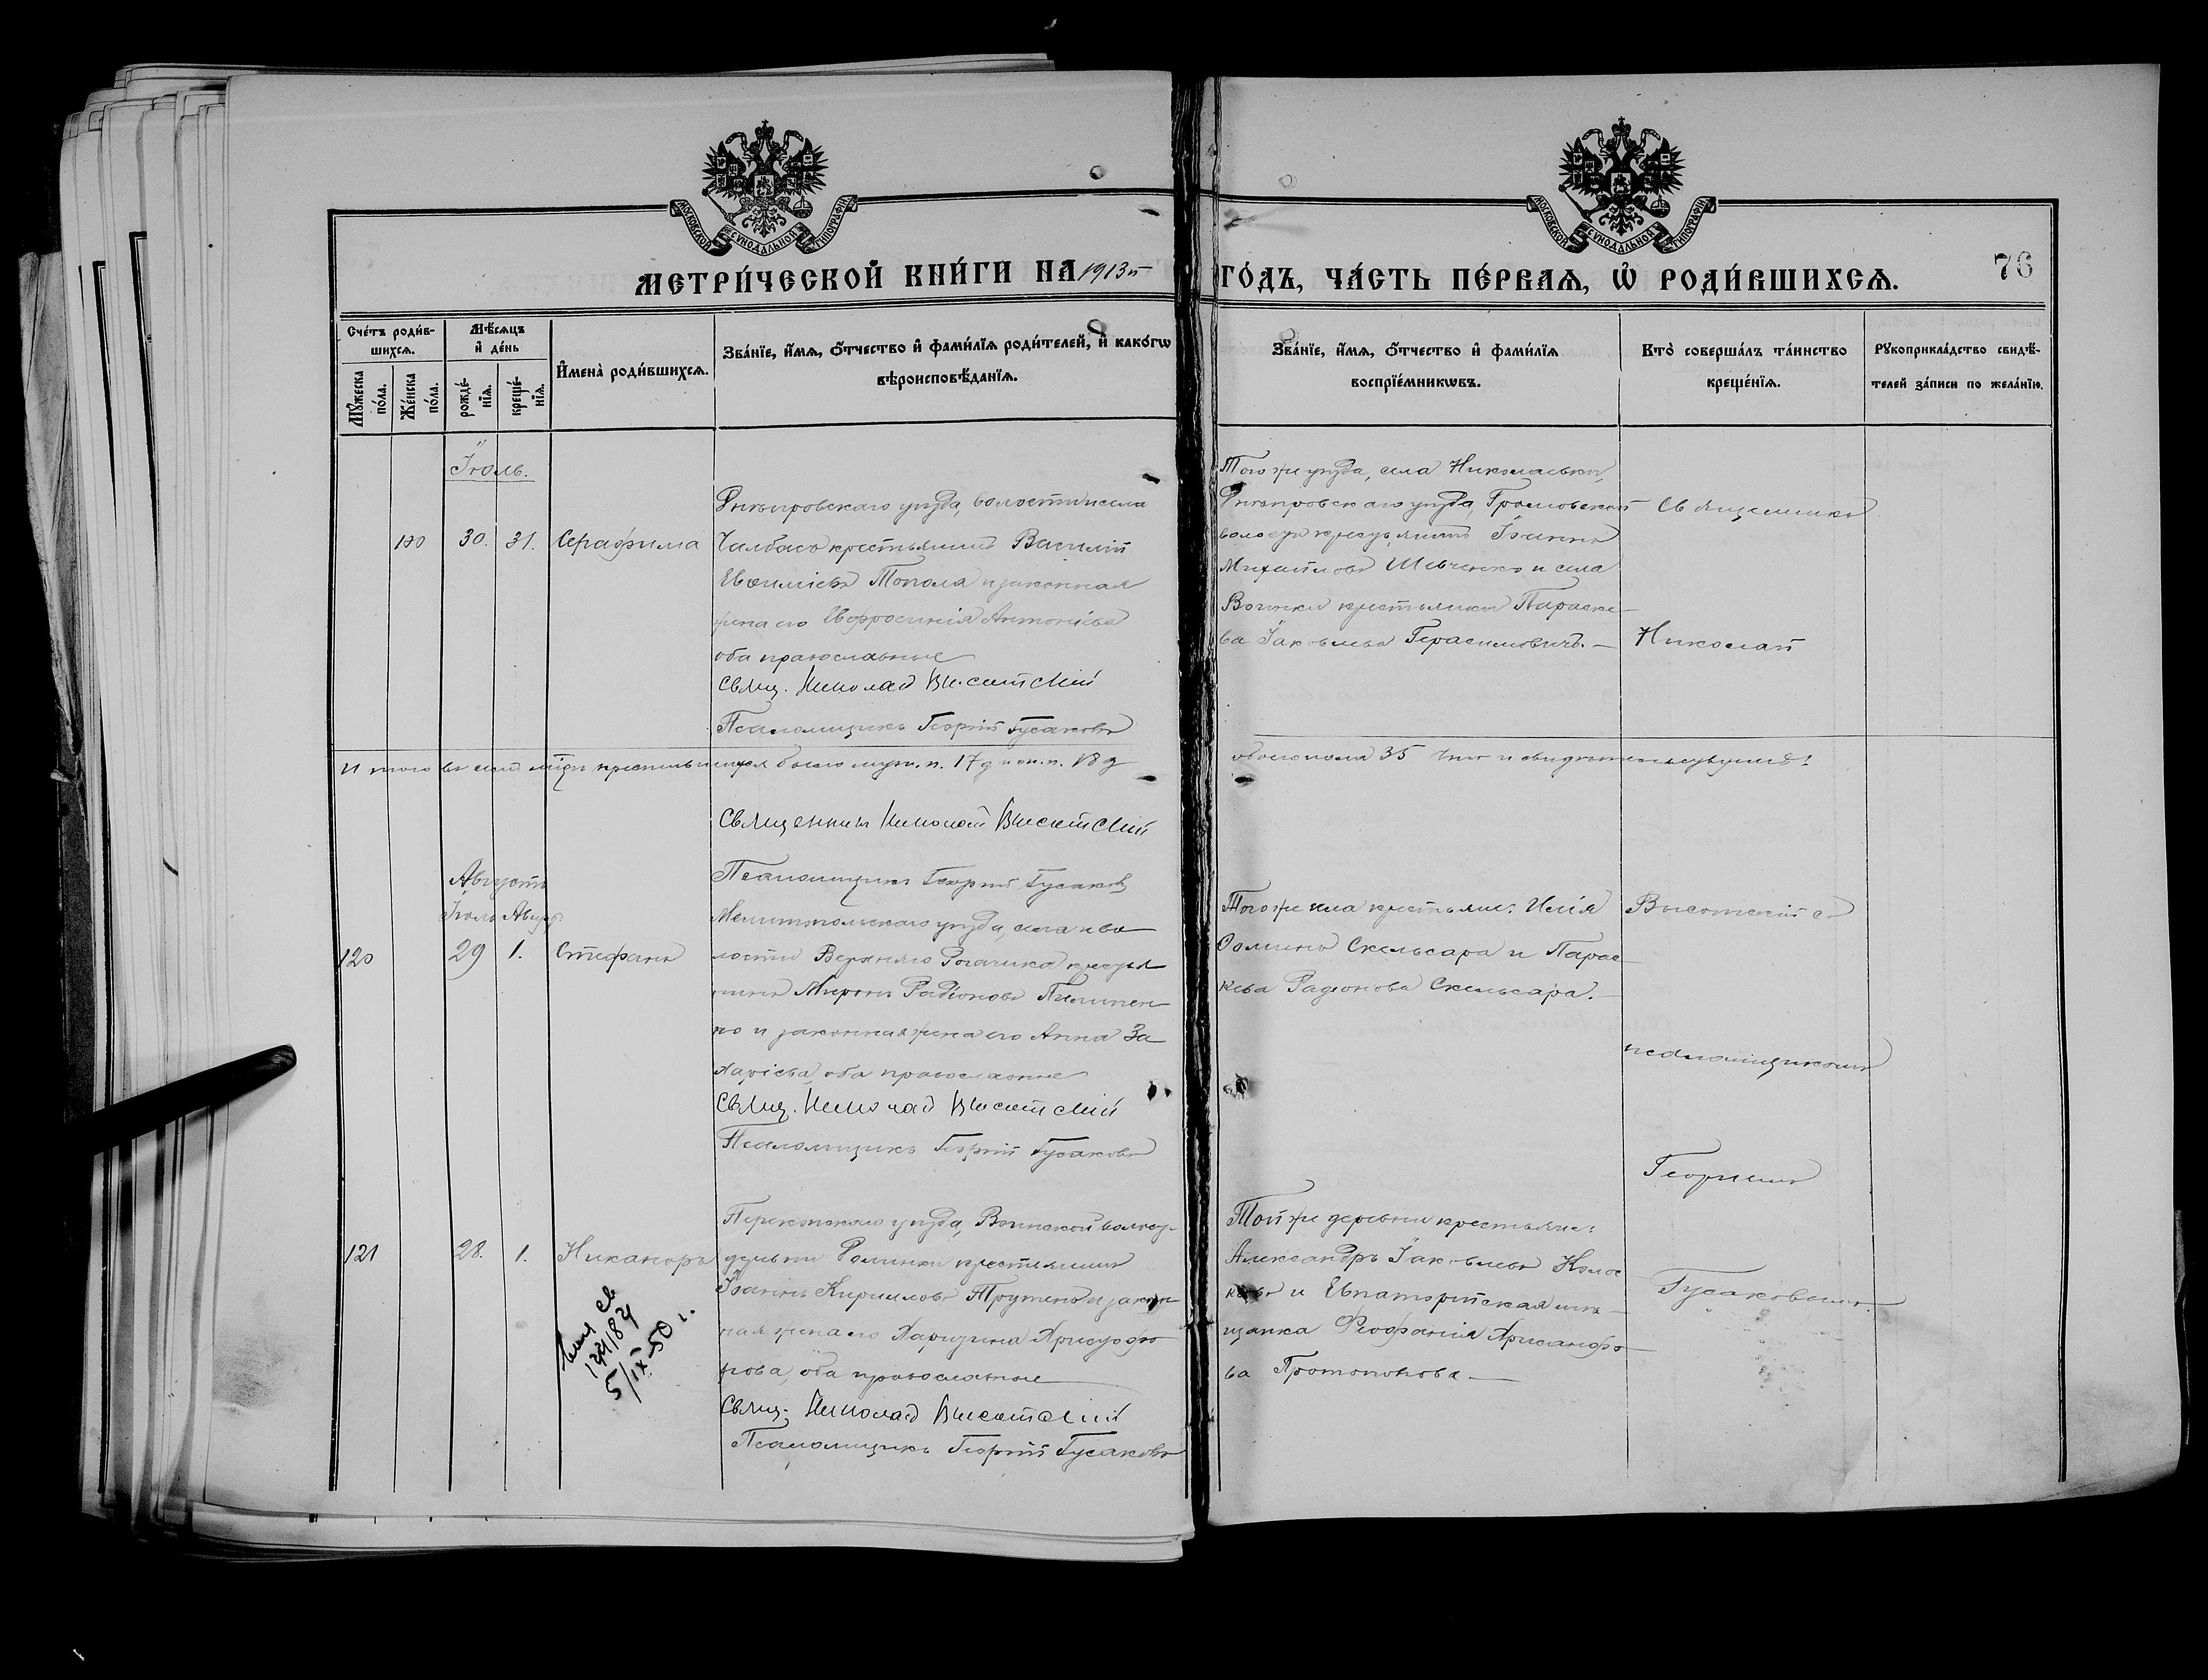 МОСКОВСКОЙ СѴНОДАЛЬНОЙ ТИПОГРАФІИ
МОСКОВСКОЙ СѴНОДАЛЬНОЙ ТИПОГРАФІИ
МЕТРИ́ЧЕСКОЙ КНИ́ГИ НА 1913й ГО́ДЪ, ЧА́СТЬ ПЕ́РВАѦ, Ѡ҆ РОДИ́ВШИХСѦ.
76
Сче́тъ роди́в-
шихсѧ.
Мꙋ́жеска по́ла.
Же́нска по́ла.
Мѣ́сѧцъ
и҆ де́нь
рожде́-
нїѧ.
креще́-
нїѧ.
И҆мена̀ роди́вшихсѧ.
Зва́нїе, и҆́мѧ, ѻ҆́тчество и҆ фами́лїѧ роди́телей, и҆ како́гѡ
вѣроисповѣ́данїѧ.
Зва́нїе, и҆́мѧ, ѻ҆́тчество и҆ фами́лїѧ
воспрїе́мникѡвъ.
Кто̀ соверша́лъ та́инство
креще́нїѧ.
Рꙋкоприкла́дство свидѣ́-
телей за́писи по жела́нїю.
Іюль.
100 30. 31. Серафима
Днѣпровскаго уѣзда, волости и села
Чалбасъ крестьянинъ Василій
Евѳиміевъ Топола и законная
жена его Евфросинія Антоніева
оба православные
Свящ. Николай Высотскій
Псаломщикъ Георгій Гусаковъ
Того же уѣзда, села Николаевки,
Днѣпровскаго уѣзда, Громовской
волости крестьянинъ Іоаннъ
Михаиловъ Шевченко и села
Воинки крестьянка Параске-
ва Іаковлева Герасимовичъ.
Священникъ
Николай
Итого въ семъ м-цѣ крестившихся было муж. п. 17 д и жен. п. 18 д
обоего пола 35 что и свидѣтельствуемъ:
Священникъ Николай Высотскій
Псаломщикъ Георгій Гусаковъ
Августъ
Іюль Авгус.
120 29 1. Стефанъ
Мелитопольскаго уѣзда, села и во-
лости Верхняго Рогачика крестья-
нинъ Миронъ Радіоновъ Пилипен-
ко и законная жена его Анна За-
харіева, оба православные
Свящ. Николай Высотскій
Псаломщикъ Георгій Гусаковъ
Того же села крестьяне: Илія
Ѳоминъ Скельсара и Парас-
кева Радіонова Скельсара.
Высотскій съ
псаломщикомъ
Георгіемъ
121 28. 1. Никаноръ
Перекопскаго уѣзда, Воинской волос.
деревни Фоминки крестьянинъ
Іоаннъ Кирилловъ Трутень и закон-
ная жена его Харитина Христофо-
рова, оба православные
Свящ. Николай Высотскій
Псаломщикъ Георгій Гусаковъ
Той же деревни крестьяне:
Александръ Іаковлевъ Колос-
ковъ и Евпаторійская мѣ-
щанка Ѳеофанія Хрисанфо-
ва Протопопова
Гусаковымъ.
5/IX-50 г.